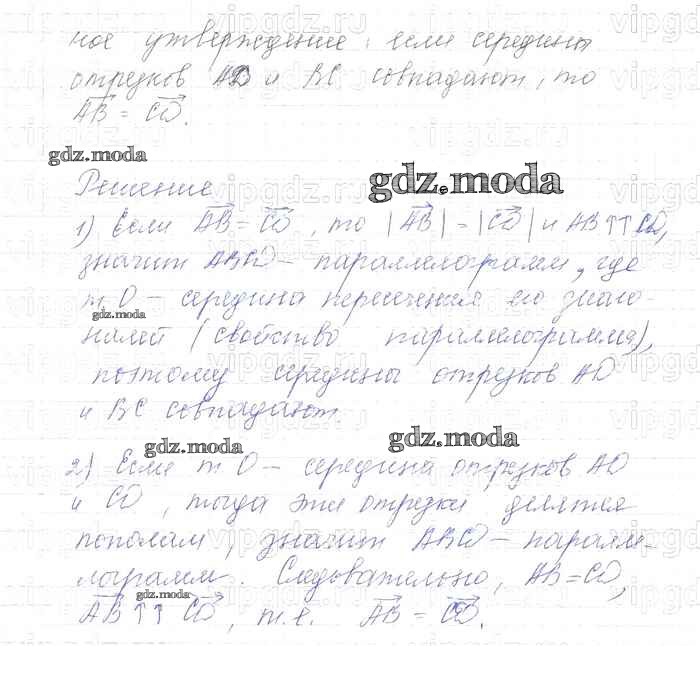 ное утверждение: если середины
отрезков AD и BC совпадают, то
AB = CD.
gdz.moda
Решение
gdz.moda
1) Если AB = CD, то |AB| = |CD| и AB↑↑CD,
значит ABCD – параллелограмм, где
т O – середина пересечения его диаго-
gdz.moda
налей (свойство параллелограмма),
поэтому середины отрезков AD
и BC совпадают.
gdz.moda
gdz.moda
2) Если т O – середина отрезков AD
и CD, тогда эти отрезки делятся
пополам, значит ABCD – паралле-
лограмм. Следовательно, AB = CD,
gdz.moda
AB ↑↑ CD, т.е. AB = CD.